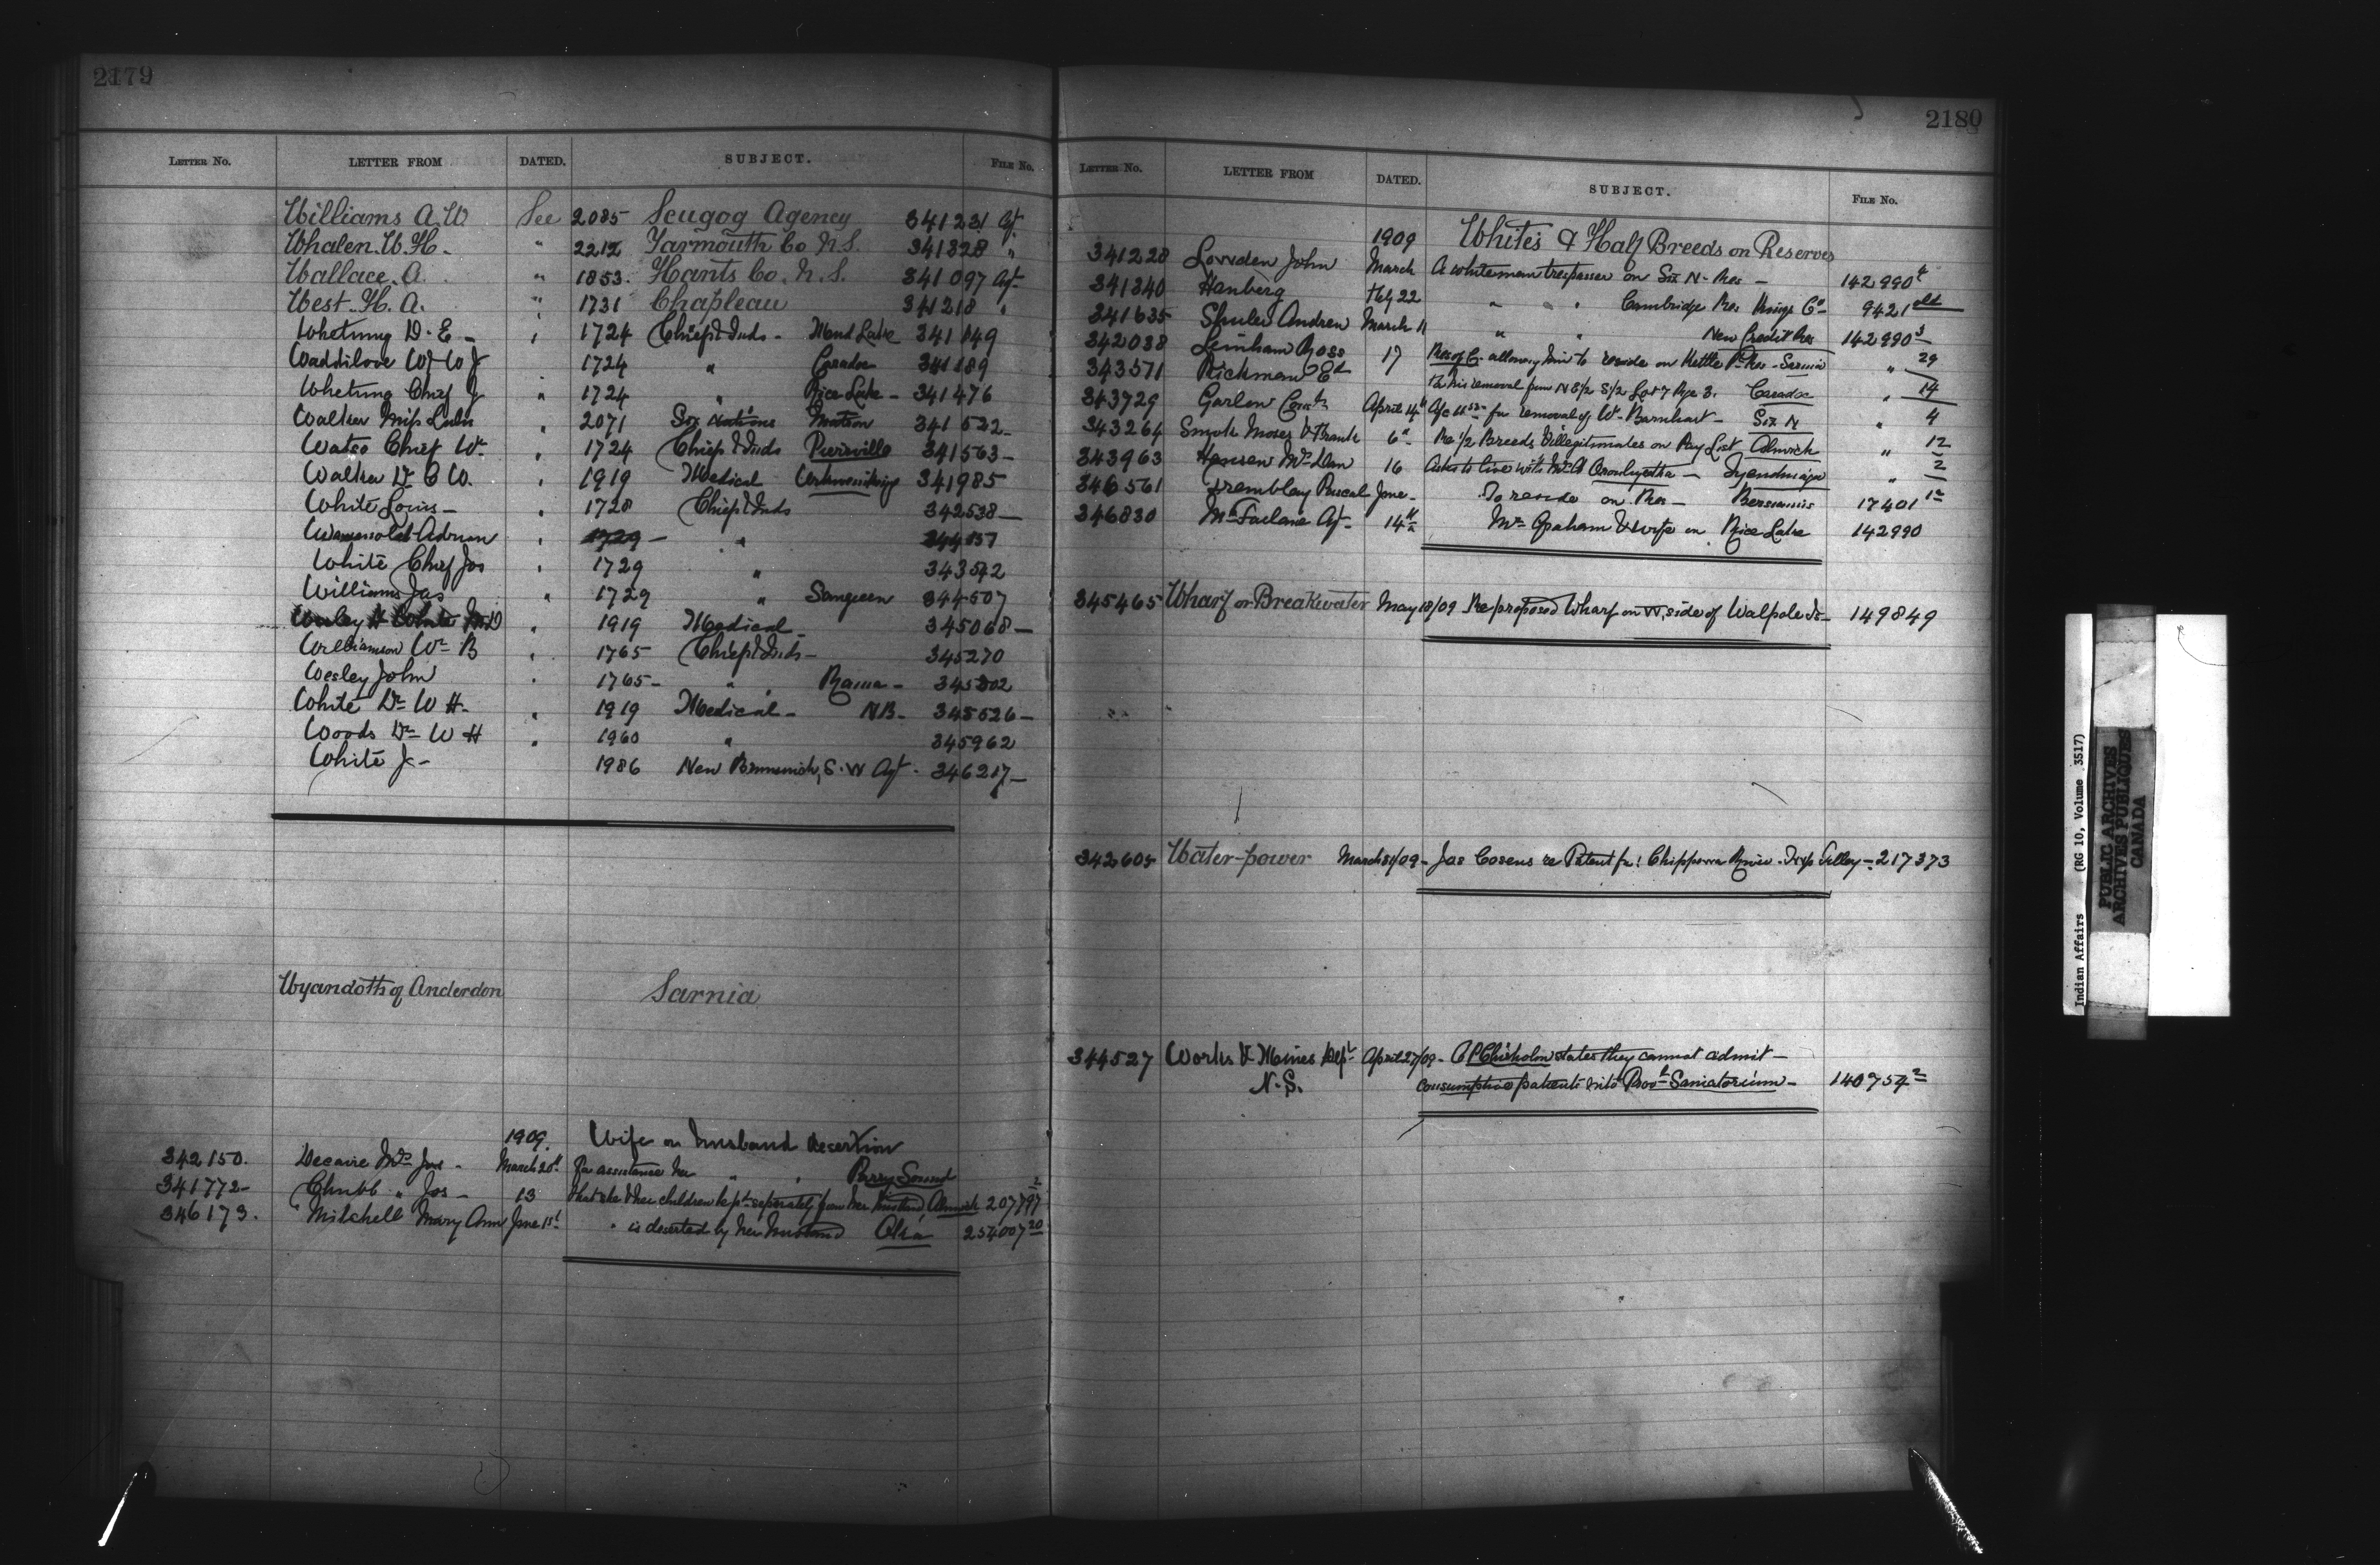 2179
LETTER No. LETTER FROM DATED. SUBJECT. FILE No.
Williams A.W. See 2085 Scugog Agency 341231 Agt.
Whalen W.H. " 2212 Yarmouth Co N.S. 341328 "
Wallace A. " 1853 Hants Co. N.S. 341097 Agt.
West H.A. " 1731 Chapleau 341218 "
Whetung D.E - " 1724 Chief & Inds - Mud Lake 341149
Waddilove W J " 1724 " Caradoc 341189
Whetung Chief J " 1724 " Rice Lake - 341476
Walker Miss Lulu " 2071 Six Nations Matron 341522 -
Watso Chief Wm " 1724 Chief & Inds Pierreville 341563 -
Walker Dr C W. " 1919 Medical 341985
White Louis - " 1728 Chief & Inds 342538 -
" 1729 - " 344157
White Chief Jos " 1729 " 343542
Williams Jas " 1729 " Saugeen 344507
" 1919 Medical - 345068 -
Williamson Wm B " 1765 Chief & Inds - 345270
Wesley John " 1765 - " Rama - 345302
White Dr W H - " 1919 Medical - N B - 345526 -
Woods Dr W H " 1960 " 345962
White J - 1986 New Brunswick, S.W Agt. 346217 -
Wyandotts of Anderdon Sarnia
1909. Wife or husband desertion
342150. Decaire Mrs Jos - March 20th For assistance her " " Parry Sound
341772 - Chubb " Jos - 13 that she & her children kept seperately from her husband Alnwick 207797 2
346173. Mitchell Mary Ann June 1st " is deserted by her husband Oka 254007 20
2180
LETTER No. LETTER FROM DATED. SUBJECT. FILE No.
1909 Whites & Half Breeds on Reserves
341228 Lowden John March A whiteman trespasser on Six N - Res - 142990 4
341340 Hanberg Feby 22 " " " Cambridge Res Kings Co - 9421 old
341635 Shuler Andrew March 11 " " New Credit Res 142990 3
342038 Leinham Ross 17 Res of C. allowing him to reside on Kettle Pt Res - Sarnia " 29
343571 Rickman Ed Re his removal from N E 1/2 S 1/2 Lot 7 Rge 3. Caradoc " 14
343729 Garlow April 14th A/c for removal of Wm Barnhart - Six N " 4
343264 Smoke Moses & Frank 6th Re 1/2 Breeds & illegitimates on Pay List Alnwick " 12
343963 Hansen Mrs Dan 16 Asks to live with - Tyendinaga " 2
346561 Tremblay Pascal June - To reside on Res - Bersimis 17401 12
346830 McFarlane Agt - 14th Mr Graham & wife on Rice Lake 142990
345465 Wharf or Breakwater May 18/09 Re proposed Wharf on W, side of Walpole Is - 149849
342605 Water-power March 31/09 - Jas Cosens re Patent for Chippewa River. Twp Tilley - 217373
344527 Works & Mines Dept April 27/09 - A P Chisholm states they cannot admit -
N.S. consumptive patients into Provl Saniatorium - 140754 2
Indian Affairs (RG 10, Volume 3517)
PUBLIC ARCHIVES
ARCHIVES PUBLIQUES
CANADA